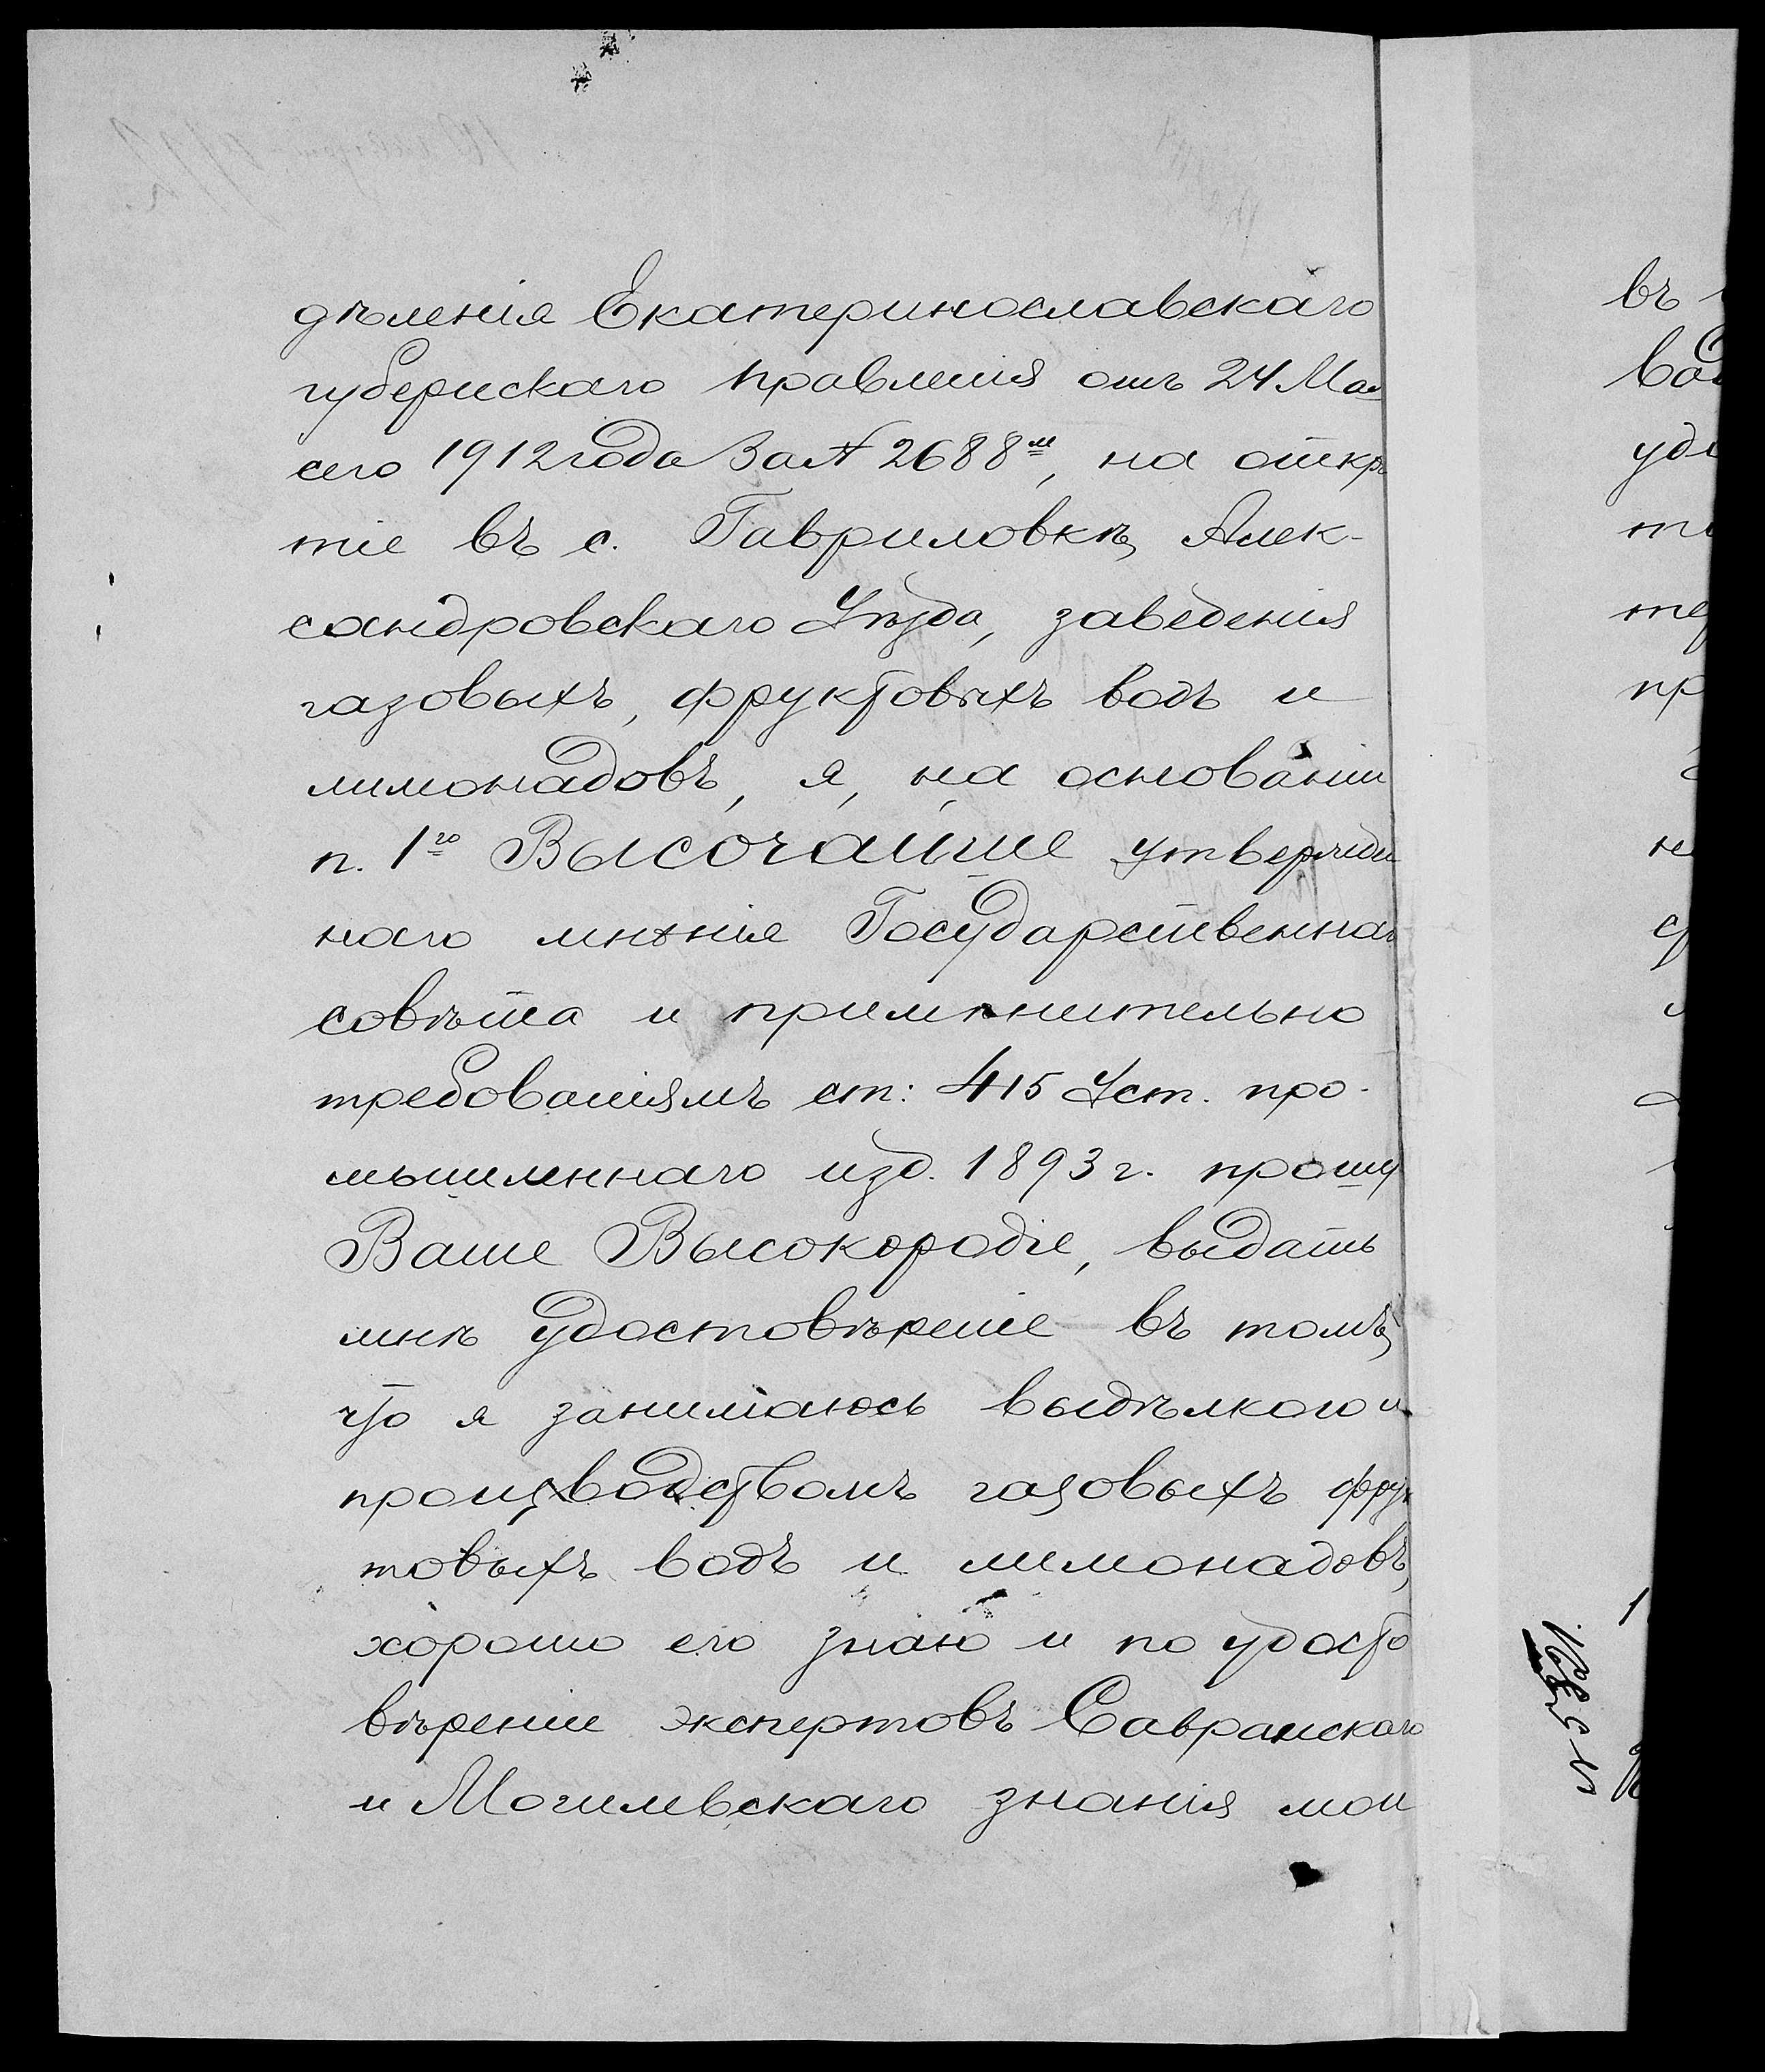 дѣленія Екатеринославскаго
губернскаго правленія отъ 24 Мая
сего 1912 года За № 2688м, на откры
тіе въ с. Гавриловкѣ, Алек-
сандровскаго Уѣзда, заведенія
газовыхъ, фруктовыхъ водъ и
лимонадовъ, я, на основаніи
п. 1го Высочайше утвержден
наго мнѣнія Государственнаго
совѣта и примѣнительно
требованіямъ ст: 415 Уст. про-
мышленнаго изд. 1893 г. прошу
Ваше Высокородіе, выдать
мнѣ удостовѣреніе въ томъ,
что я занимаюсь выдѣлкою и
производствомъ газовыхъ фрук
товыхъ водъ и лимонадовъ,
хорошо его знаю и по удосто
вѣренію экспертовъ Савранскаго
и Могилевскаго знанія мои
въ